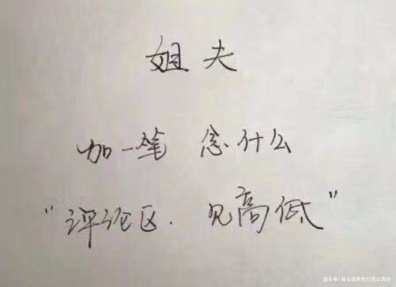 姐夫
加一笔 念什么
“评论区. 见高低”